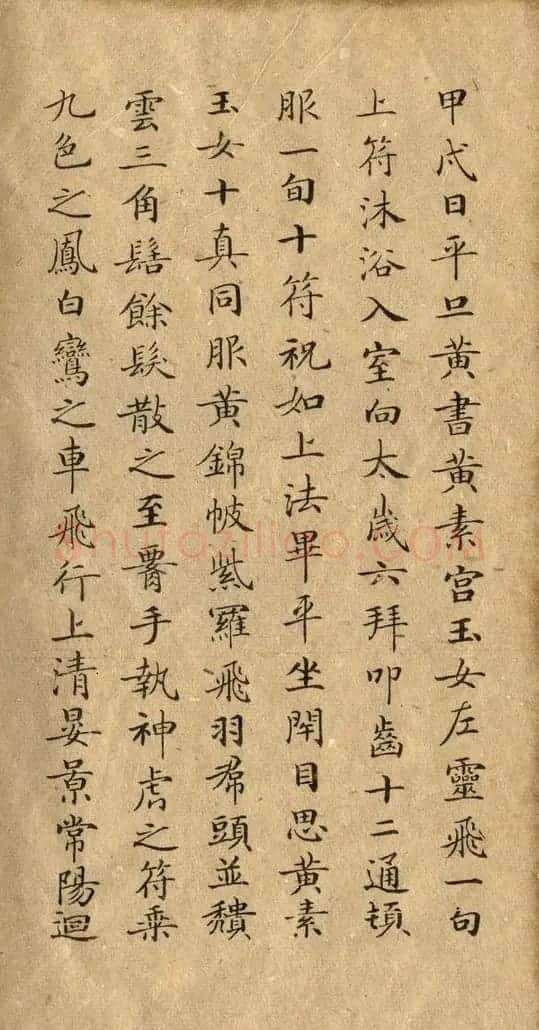 甲戌日平旦黃書黃素宮玉女左靈飛一旬
上符沐浴入室向太歲六拜叩齒十二通頓
服一旬十符祝如上法畢平坐閇目思黃素
玉女十真同服黃錦帔紫羅飛羽帬頭並頹
雲三角髻餘髮散之至腰手執神虎之符乘
九色之鳳白鸞之車飛行上清晏景常陽迴
shufaziliao.com